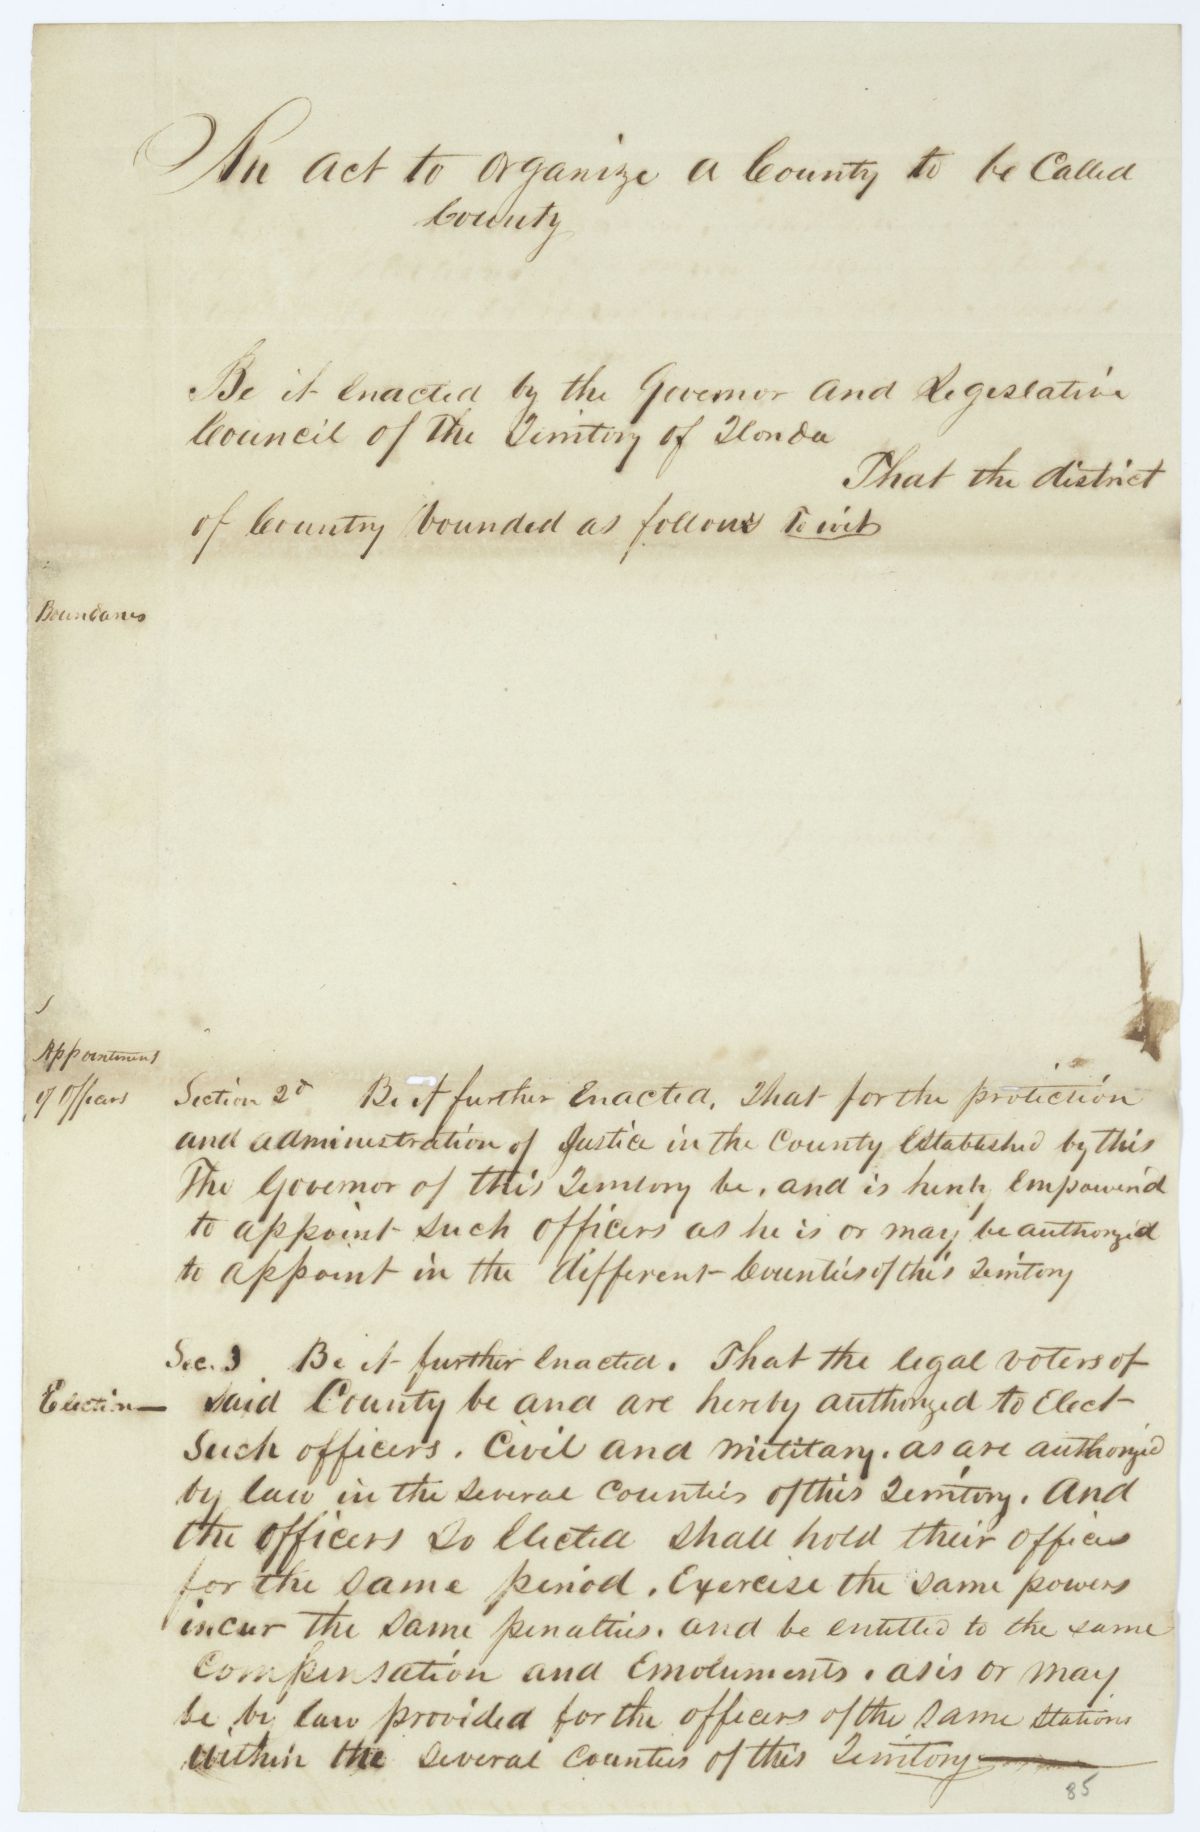 An act to organize a County to be Called
County
Be it Enacted by the Governor and Legislative
Council of the Territory of Florida
That the district
of Country bounded as follows To wit
Boundaries
Appointment
of Officers
Section 2d Be it further Enacted, That for the protection
and administration of Justice in the County Established by this
The Governor of this Territory be, and is hereby Empowered
to appoint such officers as he is or may be authorized
to appoint in the different Counties of this Territory
Sec. 3 Be it further Enacted. That the legal voters of
Election— said County be and are hereby authorized to Elect
Such officers. Civil and military. as are authorized
by law in the several Counties of this Territory. And
the officers so Elected shall hold their offices
for the same period. Exercise the same powers
incur the same penalties. and be entitled to the same
Compensation and Emoluments. as is or may
be by law provided for the officers of the same stations
within the several Counties of this Territory
85